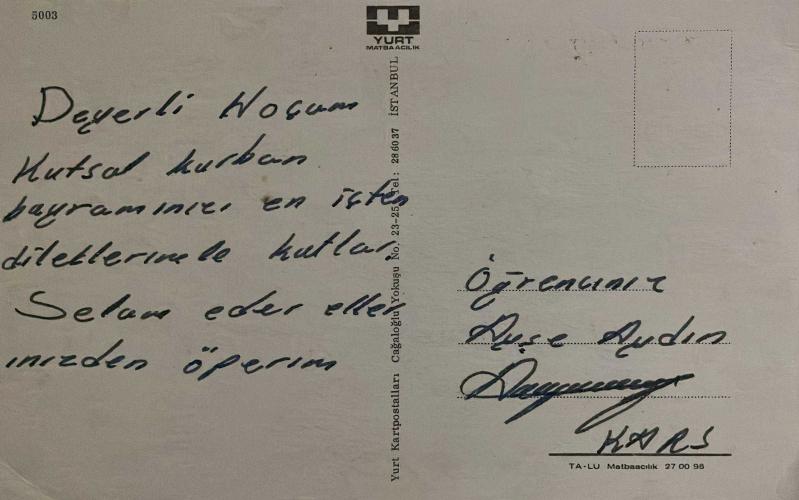 5003
YURT
MATBAACILIK
Değerli Hocam
Kutsal kurban
bayramınızı en içten
dileklerimle kutlar.
Selam eder eller
inizden öperim
Yurt Kartpostalları Cağaloğlu Yokuşu No. 23-25 Tel: 286037 İSTANBUL
Öğrenciniz
Ayşe Aydın
KARS
TA-LU Matbaacılık 27 00 98